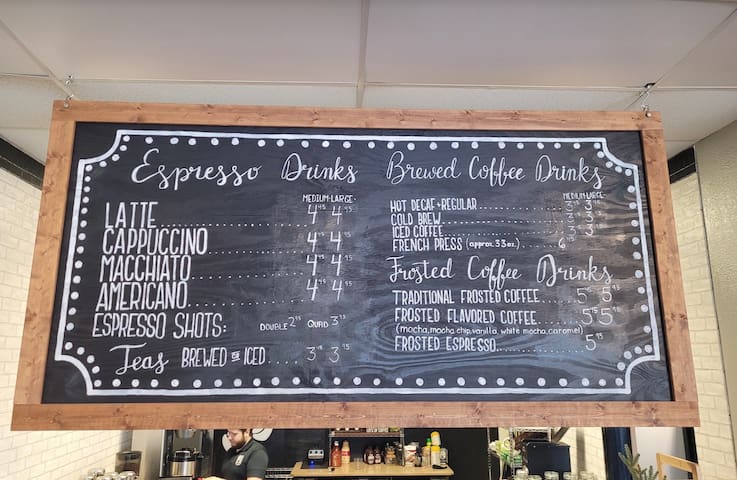 Espresso Drinks
MEDIUM-LARGE-
LATTE 4 4
CAPPUCCINO 4 4
MACCHIATO 4 4
AMERICANO 4 4
ESPRESSO SHOTS: DOUBLE 2 QUAD 3
Teas BREWED OR ICED.... 3 3
Brewed Coffee Drinks
MEDIUM-LARGE-
HOT DECAF + REGULAR 3 3
COLD BREW 3 3
ICED COFFEE 3 3
FRENCH PRESS (approx. 33oz.) 6
Frosted Coffee Drinks
TRADITIONAL FROSTED COFFEE 5 5
FROSTED FLAVORED COFFEE 5 5
(mocha, mocha chip, vanilla, white mocha, caramel)
FROSTED ESPRESSO 5